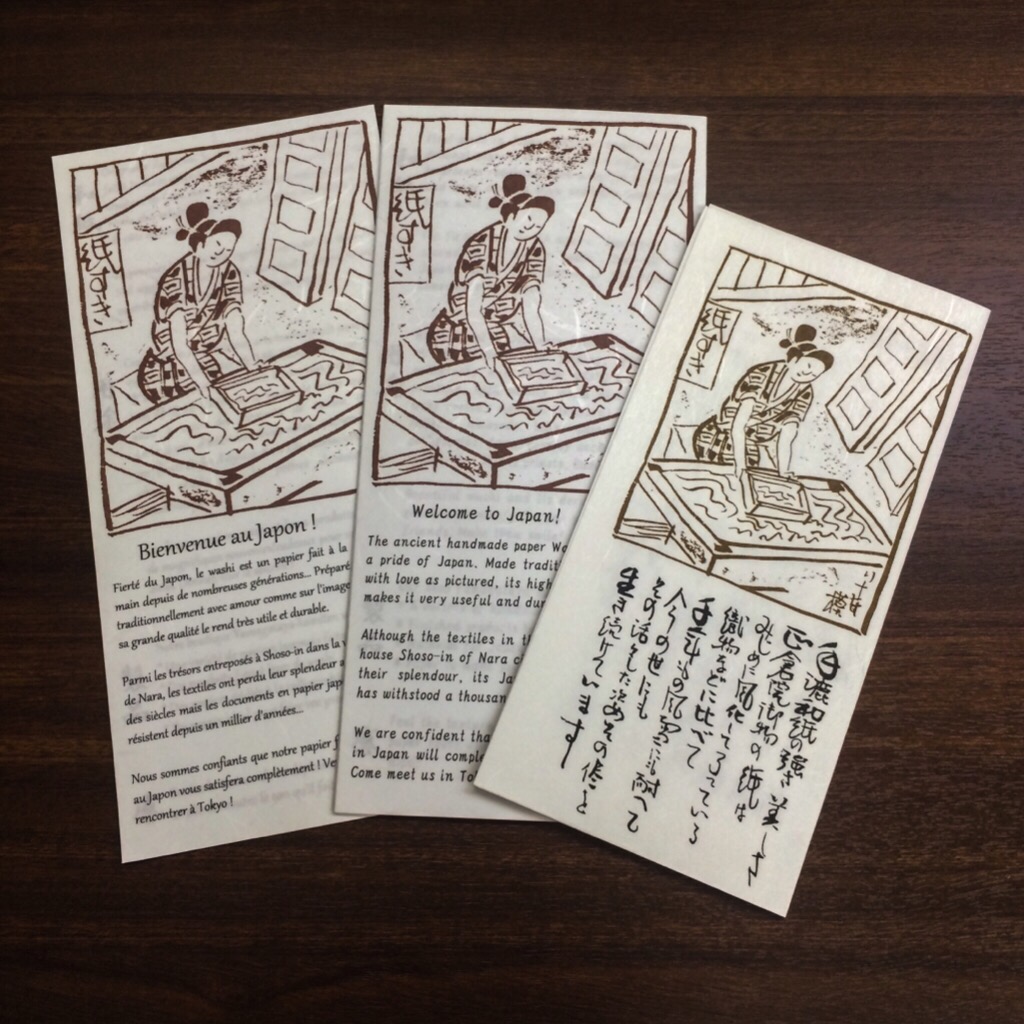 紙すき
Bienvenue au Japon !
Fierté du Japon, le washi est un papier fait à la
main depuis de nombreuses générations... Préparé
traditionnellement avec amour comme sur l'image
sa grande qualité le rend très utile et durable.
Parmi les trésors entreposés à Shoso-in dans la v
de Nara, les textiles ont perdu leur splendeur a
des siècles mais les documents en papier jap
résistent depuis un millier d'années...
Nous sommes confiants que notre papier f
au Japon vous satisfera complètement ! Ve
rencontrer à Tokyo !
紙すき
Welcome to Japan!
The ancient handmade paper Wa
a pride of Japan. Made tradit
with love as pictured, its high
makes it very useful and dur
Although the textiles in th
house Shoso-in of Nara c
their splendour, its Ja
has withstood a thousan
We are confident tha
in Japan will comple
Come meet us in To
紙すき
手漉和紙の強さ美しさ
正倉院御物の紙は
みじめに風化してろっている
織物などに比べて
千二百年の風雪にも耐へて
今の世にも
その活々した次めその侭に
生き続けています